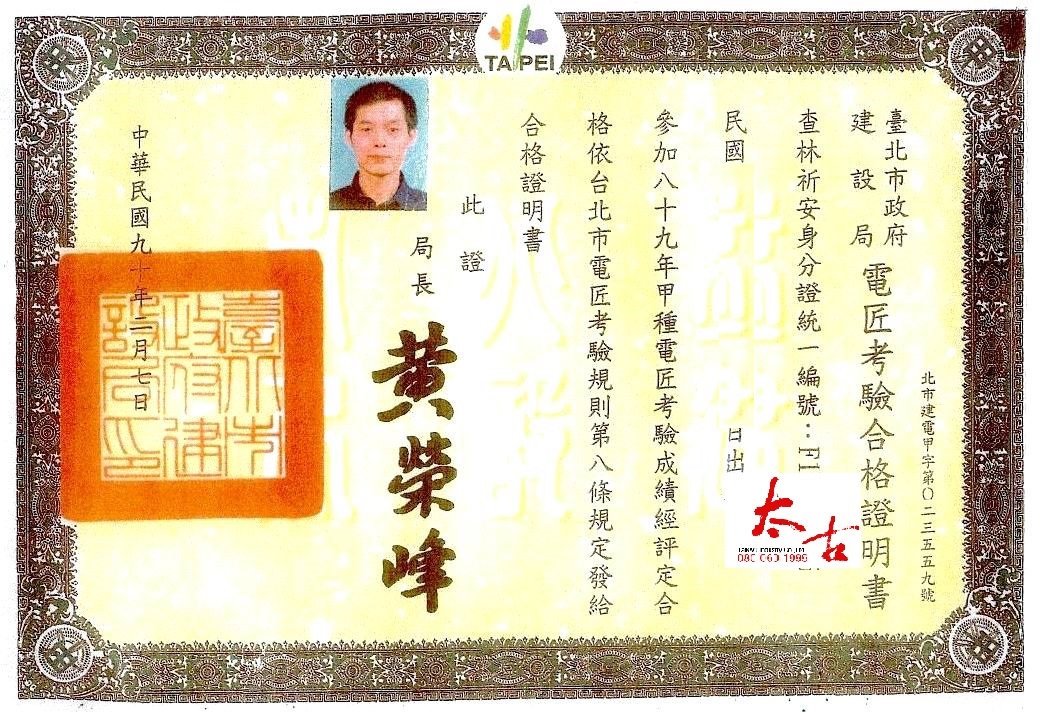 TAIPEI
北市建電甲字第〇二三五五九號
臺北市政府
建設局
電匠考驗合格證明書
查林祈安身分證統一編號：F1
民國
日出
參加八十九年甲種電匠考驗成績經評定合
格依台北市電匠考驗規則第八條規定發給
合格證明書
此證
局長
黃榮峰
中華民國九十年二月七日
臺北市
政府建
設局印
太古
080 060 1999